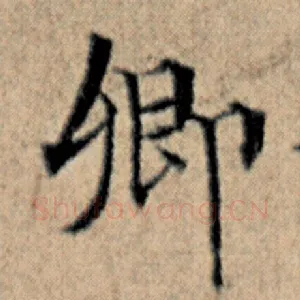 卿
ShufaWang.CN